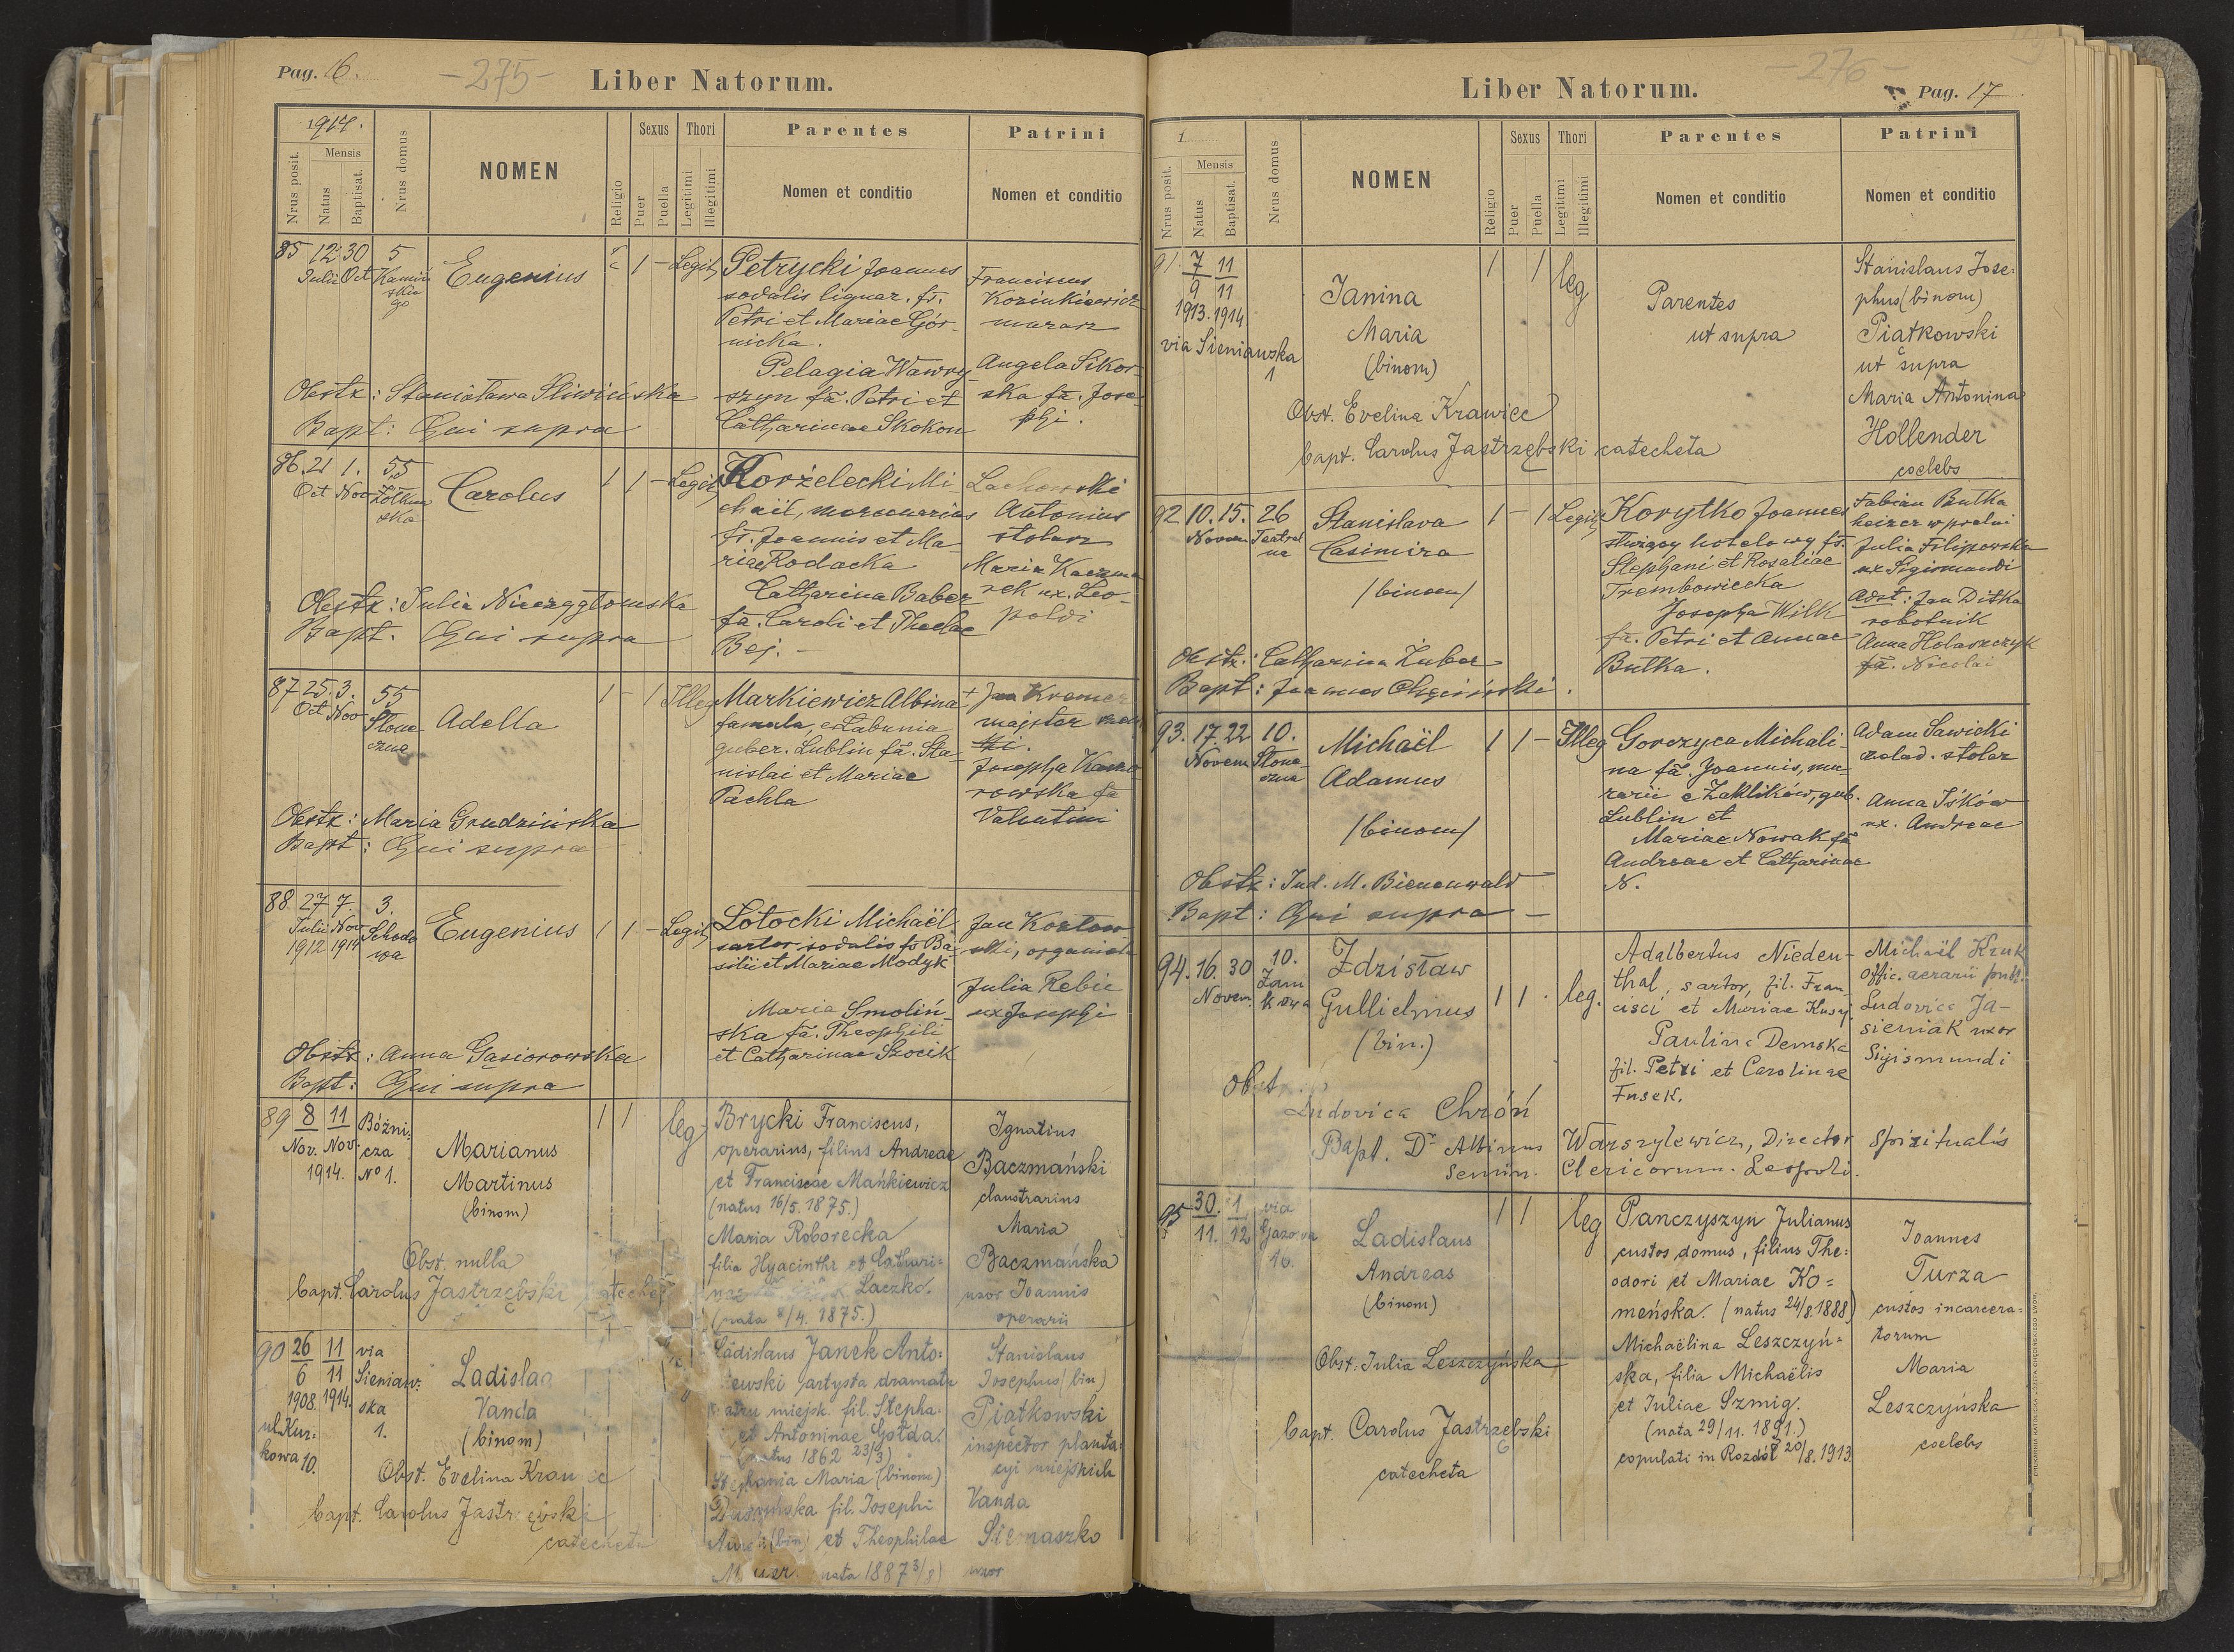 Pag. 16.
- 275 -
Liber Natorum.
1914.
Nrus posit.
Mensis
Natus
Baptisat.
Nrus domus
NOMEN
Religio
Sexus
Puer
Puella
Thori
Legitimi
Illegitimi
Parentes
Nomen et conditio
Patrini
Nomen et conditio
85 12 30 5
Julii Oct Kamiń
skie
go
Eugenius
1 - Legit
Petrycki Joannes
sodalis lignar. fs.
Petri et Mariae Gór-
nicka.
Pelagia Wawry
szyn fa. Petri et
Catharinae Skokon
Franciscus
Kozinkiewicz
murarz
Angela Sikor-
ska fa. Jose-
phi.
Obstx: Stanisława Śliwińska
Bapt: Qui supra
86. 21 1. 55
Oct Nov Żółkiew
ska
Carolus
1 1 - Legit
Korżelecki Mi-
chaël, mercenarius
fs. Joannis et Ma-
riae Rodacka
Catharina Baber
fa. Caroli et Theclae
Bej. -
Lachowski
Antonius
stolarz
Maria Kaczma
rek ux. Leo-
poldi
Obstx: Julia
Bapt. Qui supra
87 25. 3. 55
Oct Nov Słone
czna
Adella
1 - 1 Illeg
Markiewicz Albina
famula, e Labunia
guber. Lublin fa. Sta-
nislai et Mariae
Pachla
+ Jan Kremer
majster
Josepha
rowska fa
Valentini
Obstx: Maria Grudzińska
Bapt: Qui supra
88. 27 7. 3.
Julii Nov Schodo
1912 1914 wa
Eugenius
1 1 - Legit
Łotocki Michaël
sartor sodalis fs Ba-
silii et Mariae Modyk
Maria Smoliń-
ska fa. Theophili
et Catharinae Szocik
Jan Kozłow-
ski, organista
Julia Rebic
ux Josephi
Obstx: Anna Gąsiorowska
Bapt: Qui supra
89 8 11 Bóżni-
Nov. Nov. cza
1914. No 1.
Marianus
Martinus
(binom)
1 1 leg
Brycki Franciscus,
operarius, filius Andreae
et Franciscae Mańkiewicz
(natus 16/5. 1875.)
Maria Roborecka
filia Hyacinthi et Cathari=
nae Laczko.
(nata 8/4. 1875.)
Ignatius
Baczmański
claustrarius
Maria
Baczmańska
uxor Joannis
operarii
Obst. nulla
bapt. Carolus Jastrzębski catecheta
90 26 11 via
6 11 Sieniaw:
1908. 1914. ska
ul. Kur: 1.
kowa 10.
Ladislaa
Vanda
(binom)
Ladislaus Janek Anto:
iewski artysta dramatu
miejsk. fil. Stepha:
et Antoninae Gołda.
(natus 1862 23/3)
Stephania Maria (binom)
fil. Josephi
(bin) et Theophilae
nata 1887 3/8)
Stanislaus
Josephus (bin)
Piątkowski
inspector planta:
cyi miejskich
Vanda
Siemaszko
uxor
Obst. Evelina Krawiec
bapt. Carolus Jastrzębski
catecheta
Liber Natorum.
- 276 -
Pag. 17
1
Nrus posit.
Mensis
Natus
Baptisat.
Nrus domus
NOMEN
Religio
Sexus
Puer
Puella
Thori
Legitimi
Illegitimi
Parentes
Nomen et conditio
Patrini
Nomen et conditio
91. 7 11
9 11
1913. 1914
via Sieniawska
1
Janina
Maria
(binom)
1 1 leg
Parentes
ut supra
Stanislaus Jose:
phus (binom)
Piątkowski
ut supra
Maria Antonina
Hollender
coelebs
Obst. Evelina Krawiec
bapt. Carolus Jastrzębski catecheta
92 10. 15. 26
Novem Teatral
na
Stanislava
Casimira
/binom/
1 - 1 Legit
Korytko Joannes
służący hotelowy fs.
Stephani et Rosaliae
Trembowiecka
Josepha Wilk
fa. Petri et Annae
Butka.
Fabian Butka
heizer w pralni
Julia Filipowska
ux Sigismundi
Adst: Jan Ditka
robotnik
Anna Hołaszczyk
fa. Nicolai
Obstx.: Catharina Zuber
Bapt: Joannes Chęciński.
93. 17 22 10.
Novem Słone
czna
Michaël
Adamus
/binom/
1 1 - Illeg
Gorczyca Michali-
na fa. Joannis, mu-
rarii e Zaklików, gub.
Lublin et
Mariae Nowak fa
Andreae et Catharinae
N.
Adam Sawicki
czelad. stolar
Anna Iśków
ux. Andreae
Obstx: Jud. M. Bienenwald
Bapt: Qui supra -
94. 16. 30 10.
Novem. Zam
kowa
Zdzisław
Gullielmus
(bin.)
1 1 . leg.
Adalbertus Nieden-
thal, sartor, fil. Fran-
cisci et Mariae Kusy
Paulina Demska
fil. Petri et Carolinae
Fusek.
Michaël Kruk
Offic. aerarii publ.
Ludovica Ja-
sieniak uxor
Sigismundi
Obst.
Ludovica Chroń
Bapt. Dr Albinus Warszylewicz, Director Spiritualis
Semin. Clericorum. Leopoli.
95 30. 1 via
11. 12 Gazowa
10.
Ladislaus
Andreas
(binom)
1 1 leg
Panczyszyn Julianus
custos domus, filius The:
odori et Mariae Ko=
meńska. (natus 24/8. 1888)
Michaëlina Leszczyń=
ska, filia Michaëlis
et Juliae Szmig.
(nata 29/11. 1891.)
copulati in Rozdół 20/8. 1913.
Joannes
Turza
custos incarcera=
torum
Maria
Leszczyńska
coelebs
Obst. Julia Leszczyńska
bapt. Carolus Jastrzębski
catecheta
DRUKARNIA KATOLICKA JÓZEFA CHĘCIŃSKIEGO LWÓW.